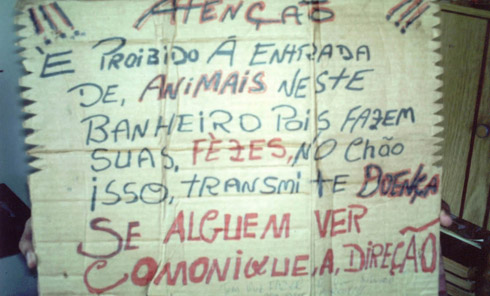 !!! ATENÇÃO !!!
É PROIBIDO Á ENTRADA
DE, ANIMAIS NESTE
BANHEIRO POIS FAZEM
SUAS, FÈZES, NO Chão
ISSO, TRANSMITE DOENÇA
SE ALGUEM VER
COMONIQUE, A, DIREÇÃO